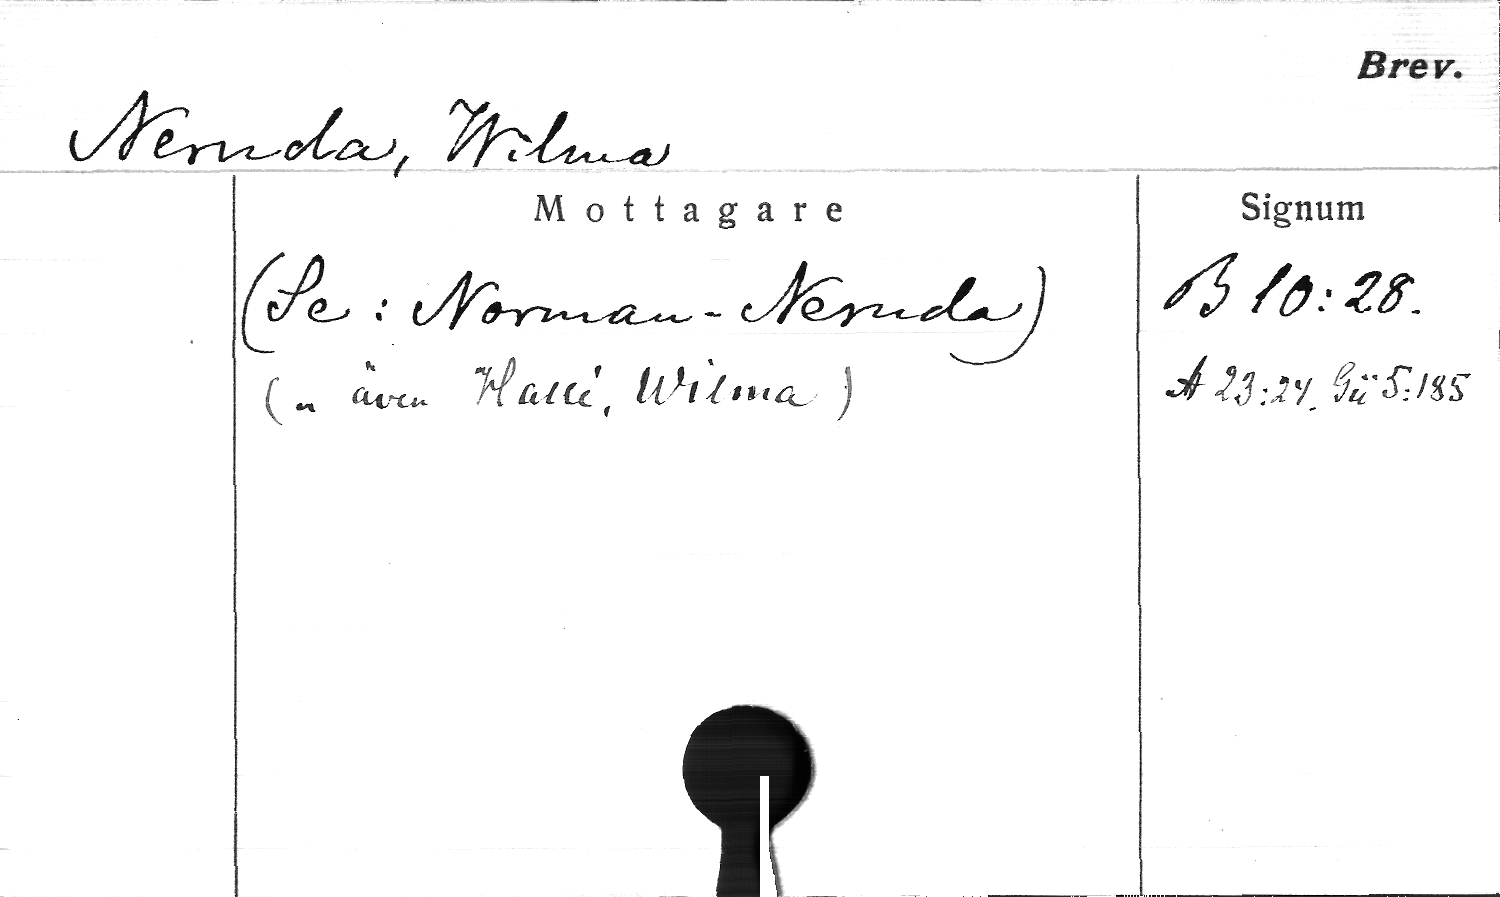 Brev.
Neruda, Wilma
Mottagare
Signum
(Se: Norman-Neruda)
B 10:28.
(" även Hallé, Wilma)
A 23:24. Gü 5:185